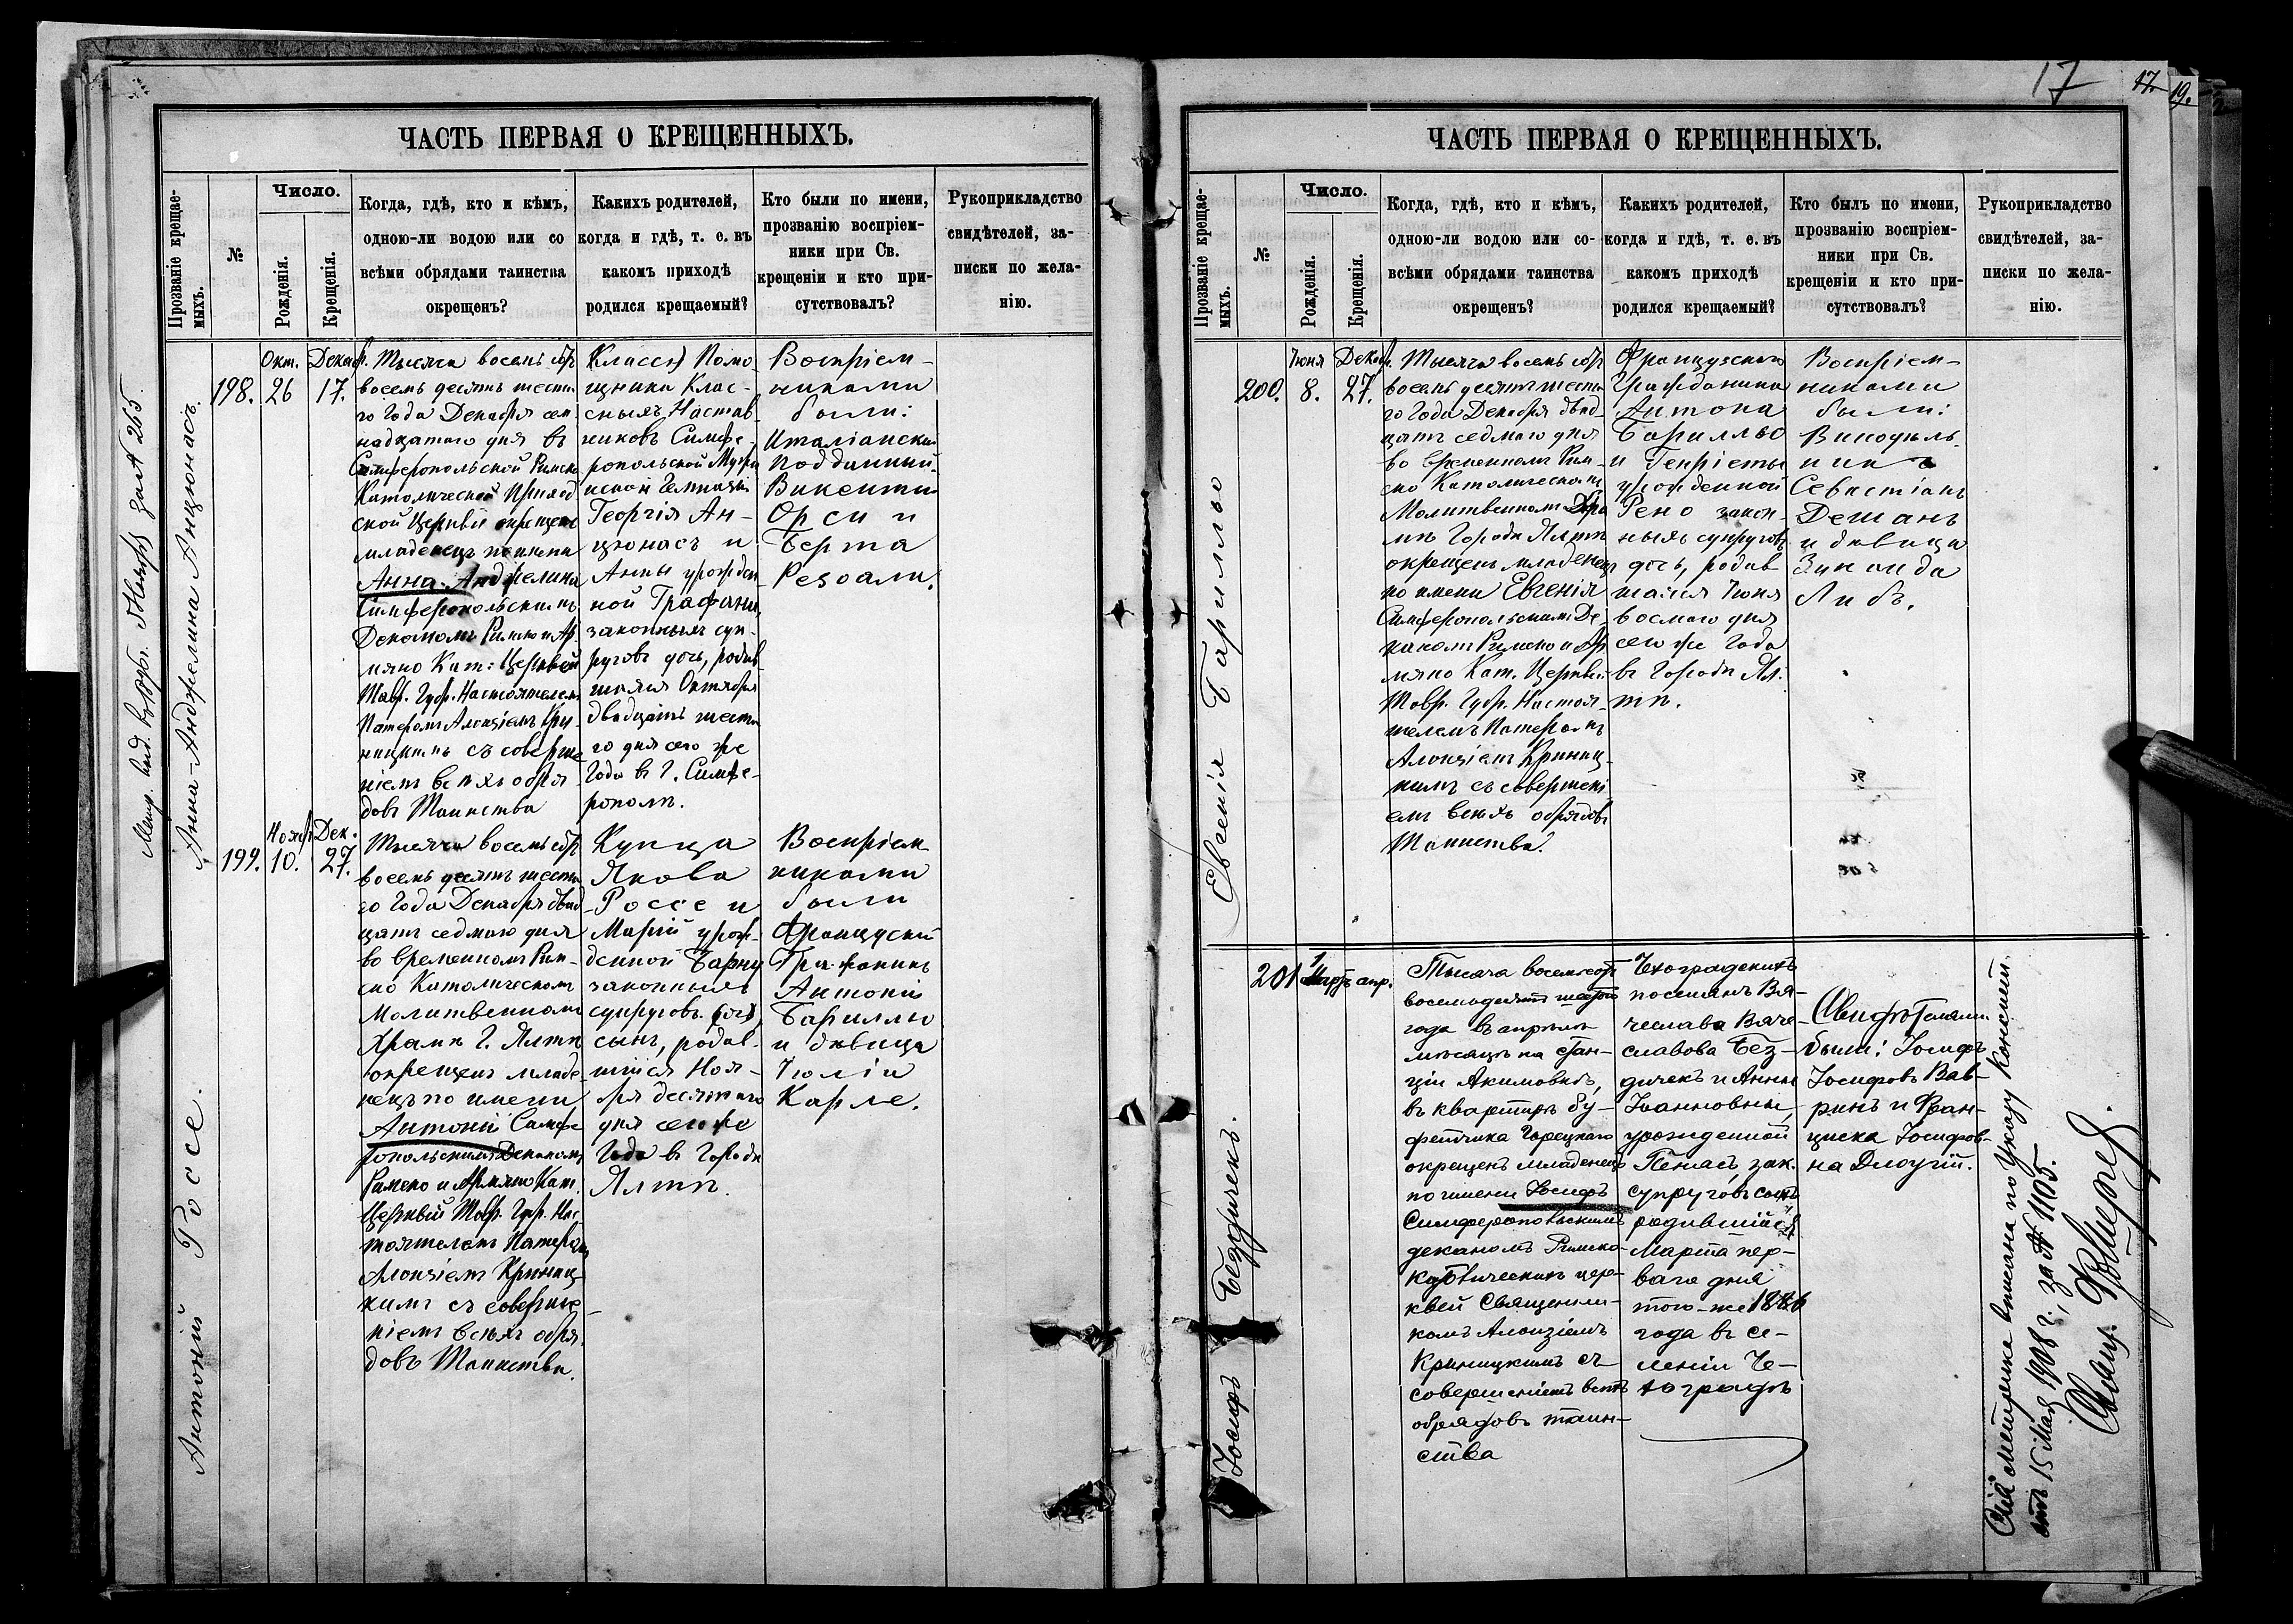 17
17.
19.
ЧАСТЬ ПЕРВАЯ О КРЕЩЕННЫХЪ.
Прозваніе крещае-
мыхъ.
№
Число.
Рожденія.
Крещенія.
Когда, гдѣ, кто и кѣмъ,
одною-ли водою или со
всѣми обрядами таинства
окрещенъ?
Какихъ родителей,
когда и гдѣ, т. е. въ
какомъ приходѣ
родился крещаемый?
Кто были по имени,
прозванію воспріем-
ники при Св.
крещеніи и кто при-
сутствовалъ?
Рукоприкладство
свидѣтелей, за-
писки по жела-
нію.
Анна-Анджелина Анцюнасъ.
198.
Окт.
26
Декаб.
17.
Тысяча восемь сотъ
восемь десятъ шеста
го Года Декабря сем
надцатаго дня въ
Симферопольской Римско
Католической Приход
ской Церкви окрещенъ
младенецъ по имени
Анна-Анджелина
Симферопольскимъ
Деканомъ Римско и Ар
мяно Кат: Церквей
Тавр. Губ. Настоятелемъ
Патеромъ Алоизіемъ Кри
ницкимъ съ соверше
ніемъ всѣхъ обря
довъ Таинства
Помо
щника Клас-
сныхъ Настав
никовъ Симфе-
ропольской Мужи
ской Гимназіи
Георгія Ан-
цюнасъ и
Анны урожден
ной Графини,
законныхъ суп-
руговъ дочь, родив
шаяся Октября
двадцать шеста
го дня сего же
Года въ г. Симфе-
рополѣ.
Воспріем-
никами
были:
Италіанскій
подданный
Викентій
Орси и
Берта
Резоали.
Антоній Россе.
199.
Нояб
10.
Дек.
27.
Тысяча восемь сотъ
восемь десятъ шеста
го Года Декабря двад
цать седмаго дня
во временномъ Рим-
ско Католическомъ
Молитвенномъ
Храмѣ г. Ялтѣ
окрещенъ младе
нецъ по имени
Антоній Симфе
ропольскимъ Деканомъ
Римско и Армяно Кат.
Церквей Тавр. Губ. Нас
тоятелемъ Патеромъ
Алоизіемъ Криниц-
кимъ съ соверше-
ніемъ всѣхъ обря
довъ Таинства.
Купца
Якова
Россе и
Маріи урож-
денной Барну
законныхъ
супруговъ
сынъ, родив-
шійся Ноя-
бря десятаго
дня сего же
Года въ Городѣ
Ялтѣ.
Воспріем
никами
были
Французскій
Гражданинъ
Антоній
Барилльо
и дѣвица
Юлія
Карле.
ЧАСТЬ ПЕРВАЯ О КРЕЩЕННЫХЪ.
Прозваніе крещае-
мыхъ.
№
Число.
Рожденія.
Крещенія.
Когда, гдѣ, кто и кѣмъ,
одною-ли водою или со-
всѣми обрядами таинства
окрещенъ?
Какихъ родителей,
когда и гдѣ, т. е. въ
какомъ приходѣ
родился крещаемый?
Кто былъ по имени,
прозванію воспріем-
ники при Св.
крещеніи и кто при-
сутствовалъ?
Рукоприкладство
свидѣтелей, за-
писки по жела-
нію.
Евгенія Барилльо
200.
Іюня
8.
Декаб.
27.
Тысяча восемь сотъ
восемь десятъ шеста
го Года Декабря двад-
цать седмаго дня
во временномъ Рим-
ско Католическомъ
Молитвенномъ Хра
мѣ Города Ялтѣ
окрещенъ младенецъ
по имени Евгенія
Симферопольскимъ Де-
каномъ Римско и Ар
мяно Кат. Церквей
Тавр. Губ. Настоя-
телемъ Патеромъ
Алоизіемъ Криниц-
кимъ съ совершені
емъ всѣхъ обрядовъ
Таинства.
Французскаго
Гражданина
Антона
Барилльо
и Генріеты
урожденной
Рено закон-
ныхъ супруговъ
дочь, родив
шаяся Іюня
восмаго дня
сего же Года
въ Городѣ Ял-
тѣ.
Воспріем-
никами
были:
Винодѣль-
никъ
Севастіанъ
Дешанъ
и дѣвица
Зинаида
Либъ.
Іосифъ Бездичекъ.
201
1
Мартъ
апр.
Тысяча восемьсотъ
восемьдесятъ шестого
года въ апрѣлѣ
мѣсяцѣ на стан-
ціи Акимовкѣ,
въ квартирѣ бу-
фетчика Горецкаго
окрещенъ младенецъ
по имени Іосифъ
Симферопольскимъ
деканомъ Римско-
Католическихъ цер-
квей Священни-
комъ Алоизіемъ
Криницкимъ съ
совершеніемъ всѣхъ
обрядовъ таин-
ства
Чехоградскихъ
поселянъ Вя-
чеслава Вяче-
славова Без-
дичекъ и Анны
Іоанновны
урожденной
Пенасъ, зак.
супруговъ сынъ
родившійся
Марта пер-
ваго дня
того-же 1886
года въ се-
леніи Че-
хоградъ
Свидѣтелями
были: Іосифъ
Іосифовъ Вав-
ринъ и Фран-
циска Іосифов-
на Длоугій.
Сія метрика вписана по указу Консист.
отъ 15 Мая 1908 г., за № 1105.
Свящ.